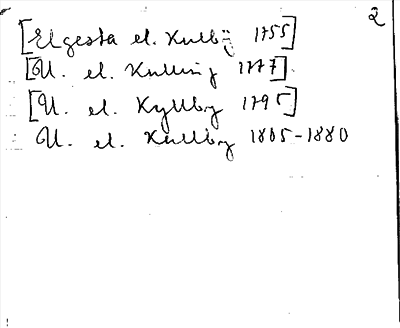 2
[Elgesta el. Kulbÿ 1755]
[U. el. Kulling 1777].
[U. el. Kyllby 1795]
U. el. Kullby 1805-1880